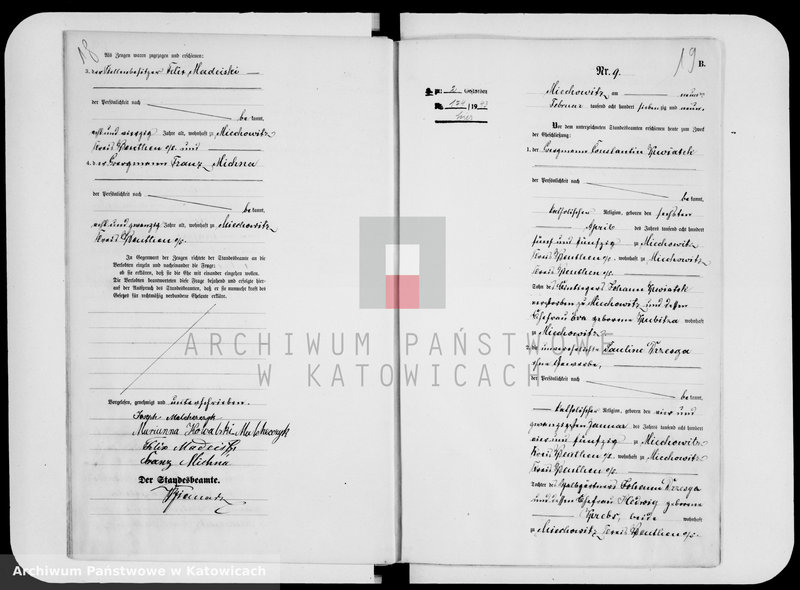 18
Als Zeugen waren zugezogen und erschienen:
3. der Stellenbesitzer Felix Madeiski
der Persönlichkeit nach
be kannt,
acht und vierzig Jahre alt, wohnhaft zu Miechowitz
Kreis Beuthen o/s. und
4. der Bergmann Franz Michna
der Persönlichkeit nach
be kannt,
acht und zwanzig Jahre alt, wohnhaft zu Miechowitz
Kreis Beuthen o/s.
In Gegenwart der Zeugen richtete der Standesbeamte an die
Verlobten einzeln und nacheinander die Frage:
ob sie erklären, daß sie die Ehe mit einander eingehen wollen.
Die Verlobten beantworteten diese Frage bejahend und erfolgte hier-
auf der Ausspruch des Standesbeamten, daß er sie nunmehr kraft des
Gesetzes für rechtmäßig verbundene Eheleute erkläre.
Vorgelesen, genehmigt und unterschrieben.
Joseph
Marianna Kowalski
Felix Madeiski
Franz Michna
Der Standesbeamte.
19
B.
Nr. 9.
Gestorben
Miechowitz am neun
Februar tausend acht hundert siebenzig und neun.
Vor dem unterzeichneten Standesbeamten erschienen heute zum Zweck
der Eheschließung:
1. der Bergmann Constantin Kwiatek
der Persönlichkeit nach
be kannt,
katholischen Religion, geboren den sechsten
April des Jahres tausend acht hundert
fünf und fünfzig zu Miechowitz
Kreis Beuthen o/s. wohnhaft zu Miechowitz
Kreis Beuthen o/s.
Sohn des Johann Kwiatek
verstorben zu Miechowitz und dessen
Ehefrau Eva geborene wohnhaft
zu Miechowitz
2. die unverehelichte Pauline Drzesga
ohne Gewerbe,
der Persönlichkeit nach
be kannt,
katholischer Religion, geboren den vier und
zwanzigsten Januar des Jahres tausend acht hundert
vier und fünfzig zu Miechowitz
Kreis Beuthen o/s. wohnhaft zu Miechowitz
Kreis Beuthen o/s.
Tochter des Halbgärtners Johann Drzesga
und dessen Ehefrau Hedwig geborene
Krebs, beide wohnhaft
zu Miechowitz Kreis Beuthen o/s.
ARCHIWUM PAŃSTWOWE
W KATOWICACH
Archiwum Państwowe w Katowicach